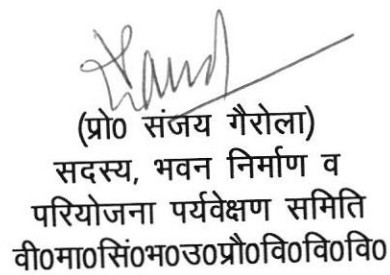 (प्रो0 संजय गैरोला)
सदस्य, भवन निर्माण व
परियोजना पर्यवेक्षण समिति
वी0मा0सिं0भ0उ0प्रौ0वि0वि0वि0